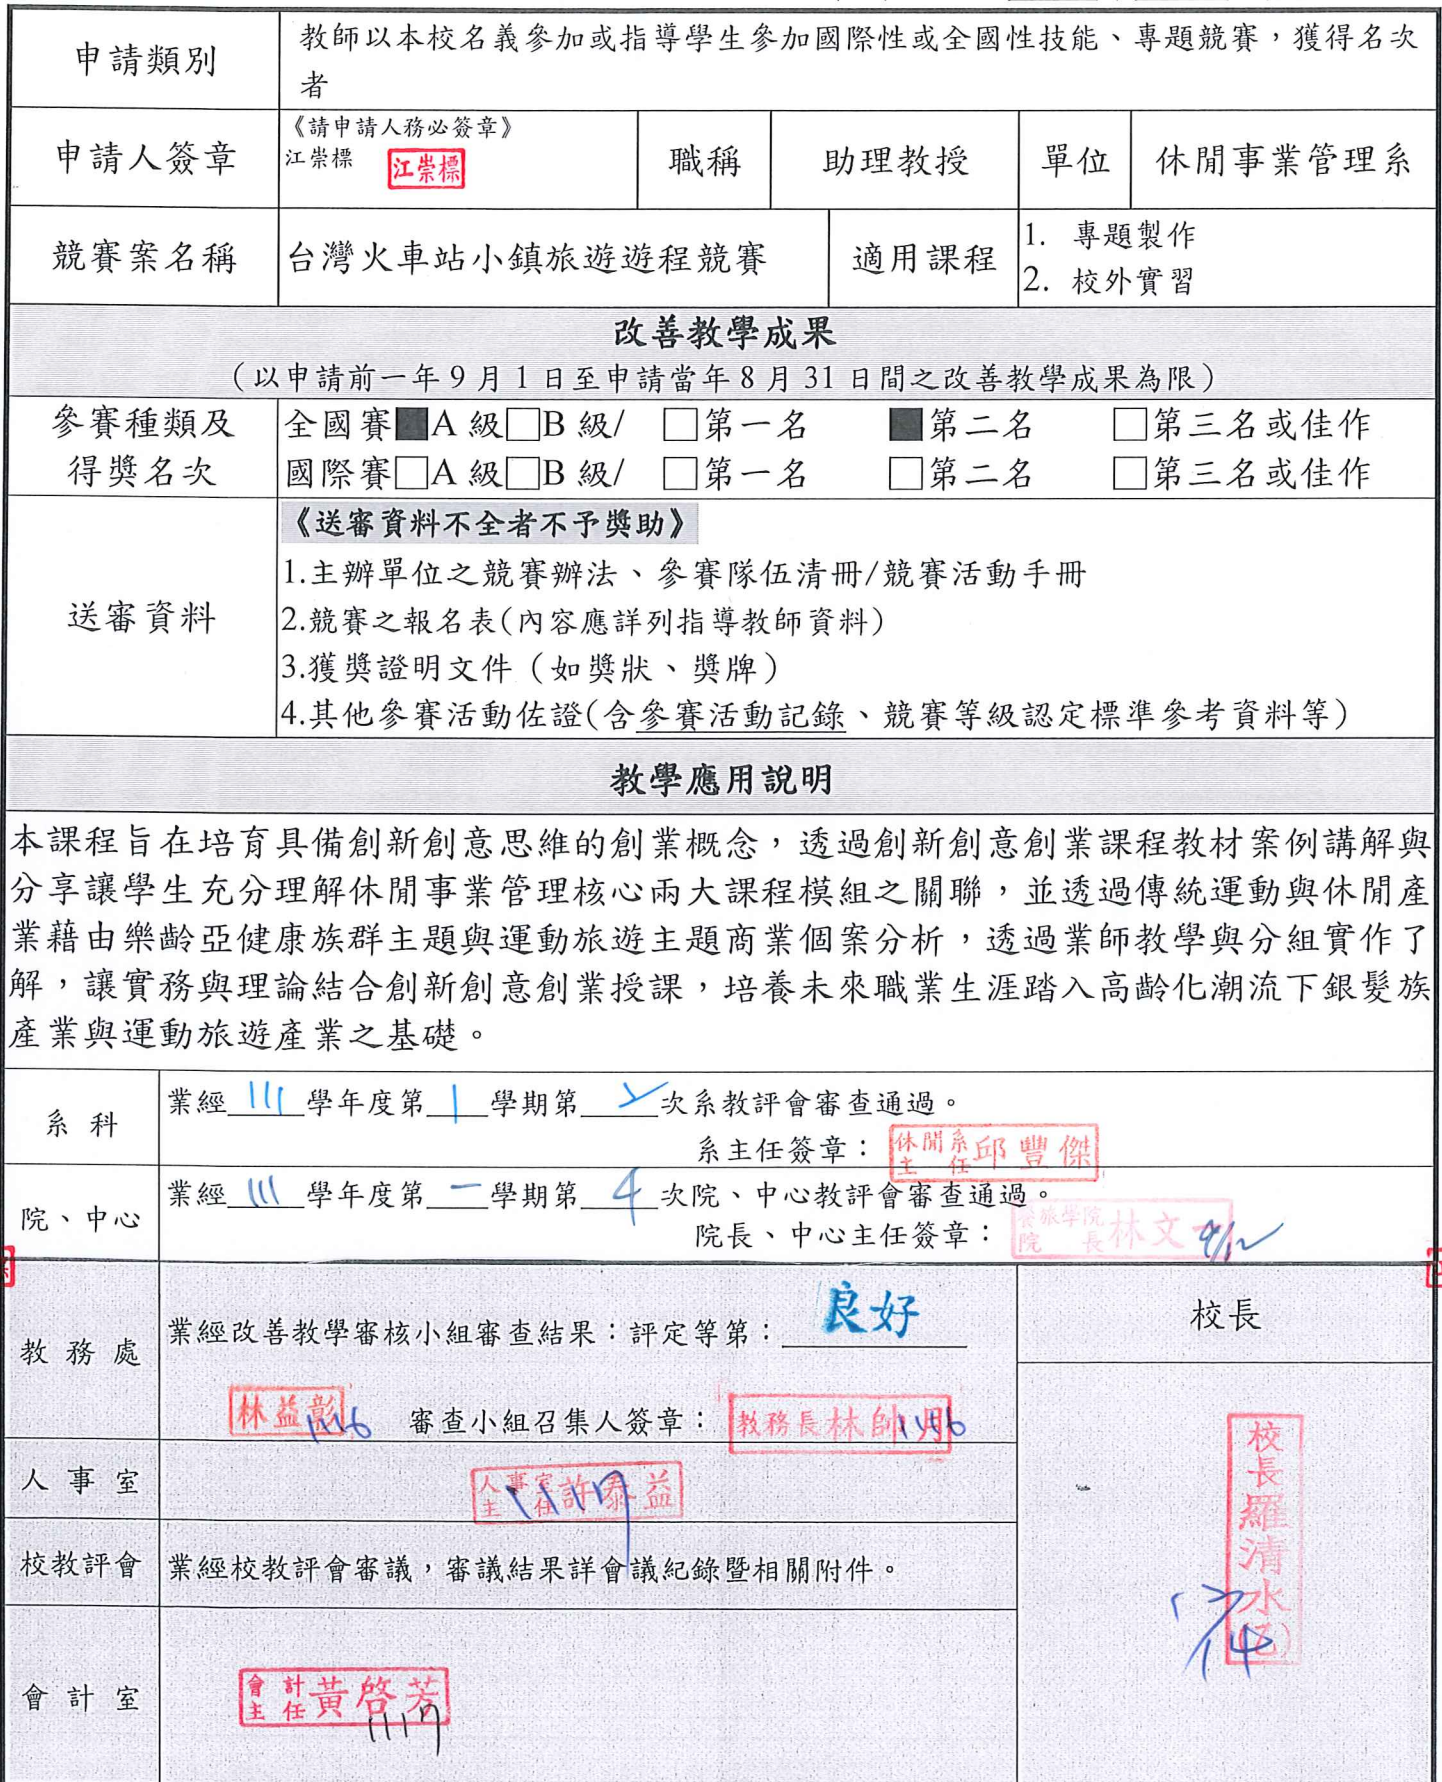 申請類別
教師以本校名義參加或指導學生參加國際性或全國性技能、專題競賽，獲得名次
者
申請人簽章
《請申請人務必簽章》
江崇標 江崇標
職稱
助理教授
單位
休閒事業管理系
競賽案名稱
台灣火車站小鎮旅遊遊程競賽
適用課程
1. 專題製作
2. 校外實習
改善教學成果
（以申請前一年 9 月 1 日至申請當年 8 月 31 日間之改善教學成果為限）
參賽種類及
得獎名次
全國賽■A 級□B 級/ □第一名 ■第二名 □第三名或佳作
國際賽□A 級□B 級/ □第一名 □第二名 □第三名或佳作
送審資料
《送審資料不全者不予獎助》
1.主辦單位之競賽辦法、參賽隊伍清冊/競賽活動手冊
2.競賽之報名表(內容應詳列指導教師資料)
3.獲獎證明文件（如獎狀、獎牌）
4.其他參賽活動佐證(含參賽活動記錄、競賽等級認定標準參考資料等)
教學應用說明
本課程旨在培育具備創新創意思維的創業概念，透過創新創意創業課程教材案例講解與
分享讓學生充分理解休閒事業管理核心兩大課程模組之關聯，並透過傳統運動與休閒產
業藉由樂齡亞健康族群主題與運動旅遊主題商業個案分析，透過業師教學與分組實作了
解，讓實務與理論結合創新創意創業授課，培養未來職業生涯踏入高齡化潮流下銀髮族
產業與運動旅遊產業之基礎。
系 科
業經 111 學年度第 1 學期第 2 次系教評會審查通過。
系主任簽章：
休閒系
主 任
邱豐傑
院、中心
業經 111 學年度第 一 學期第 4 次院、中心教評會審查通過。
院長、中心主任簽章：
餐旅學院
院 長
林文一
教 務 處
業經改善教學審核小組審查結果：評定等第： 良好
林益彰
審查小組召集人簽章：
教務長林帥月
校長
人 事 室
人事室
主 任
許泰益
校長羅清水(乙)
校教評會
業經校教評會審議，審議結果詳會議紀錄暨相關附件。
會 計 室
會 計
主 任
黃啓芳